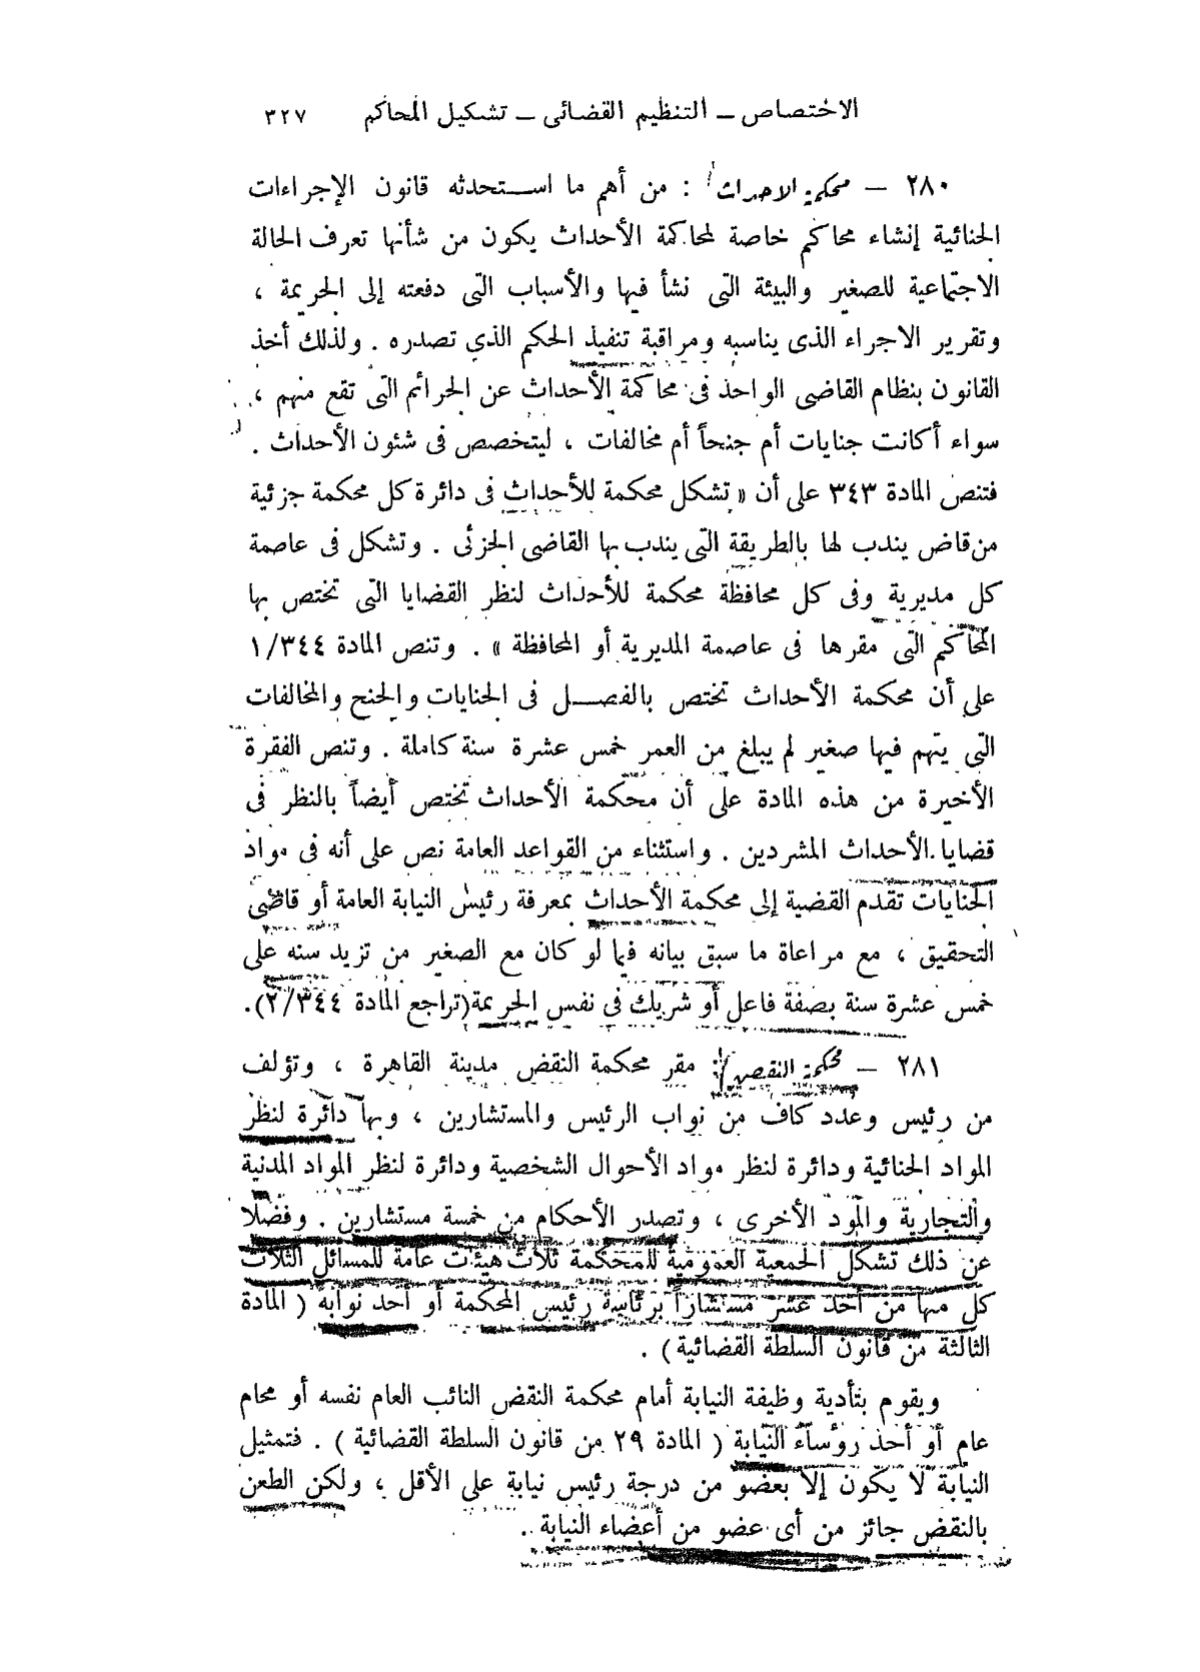 الاختصاص – التنظيم القضائى – تشكيل المحاكم ٣٢٧
٢٨٠ – محكمة الاحداث : من أهم ما استحدثه قانون الإجراءات
الجنائية إنشاء محاكم خاصة لمحاكمة الأحداث يكون من شأنها تعرف الحالة
الاجتماعية للصغير والبيئة التى نشأ فيها والأسباب التى دفعته إلى الجريمة ،
وتقرير الاجراء الذى يناسبه ومراقبة تنفيذ الحكم الذي تصدره . ولذلك أخذ
القانون بنظام القاضى الواحد فى محاكمة الأحداث عن الجرائم التى تقع منهم ،
سواء أكانت جنايات أم جنحاً أم مخالفات ، ليتخصص فى شئون الأحداث .
فتنص المادة ٣٤٣ على أن « تشكل محكمة للأحداث فى دائرة كل محكمة جزئية
من قاض يندب لها بالطريقة التى يندب بها القاضى الجزئى . وتشكل فى عاصمة
كل مديرية وفى كل محافظة محكمة للأحداث لنظر القضايا التى تختص بها
المحاكم التى مقرها فى عاصمة المديرية أو المحافظة » . وتنص المادة ١/٣٤٤
على أن محكمة الأحداث تختص بالفصل فى الجنايات والجنح والمخالفات
التى يتهم فيها صغير لم يبلغ من العمر خمس عشرة سنة كاملة . وتنص الفقرة
الأخيرة من هذه المادة على أن محكمة الأحداث تختص أيضاً بالنظر فى
قضايا الأحداث المشردين . واستثناء من القواعد العامة نص على أنه فى مواد
الجنايات تقدم القضية إلى محكمة الأحداث بمعرفة رئيس النيابة العامة أو قاضى
التحقيق ، مع مراعاة ما سبق بيانه فيما لو كان مع الصغير من تزيد سنه على
خمس عشرة سنة بصفة فاعل أو شريك فى نفس الجريمة (تراجع المادة ٢/٣٤٤).
٢٨١ – محكمة النقض : مقر محكمة النقض مدينة القاهرة ، وتؤلف
من رئيس وعدد كاف من نواب الرئيس والمستشارين ، وبها دائرة لنظر
المواد الجنائية ودائرة لنظر مواد الأحوال الشخصية ودائرة لنظر المواد المدنية
والتجارية والمود الأخرى ، وتصدر الأحكام من خمسة مستشارين . وفضلا
عن ذلك تشكل الجمعية العمومية للمحكمة ثلاث هيئات عامة للمسائل الثلاث
كل منها من أحد عشر مستشاراً برئاسة رئيس المحكمة أو أحد نوابه ( المادة
الثالثة من قانون السلطة القضائية ) .
ويقوم بتأدية وظيفة النيابة أمام محكمة النقض النائب العام نفسه أو محام
عام أو أحد رؤساء النيابة ( المادة ٢٩ من قانون السلطة القضائية ) . فتمثيل
النيابة لا يكون إلا بعضو من درجة رئيس نيابة على الأقل ، ولكن الطعن
بالنقض جائز من أى عضو من أعضاء النيابة .